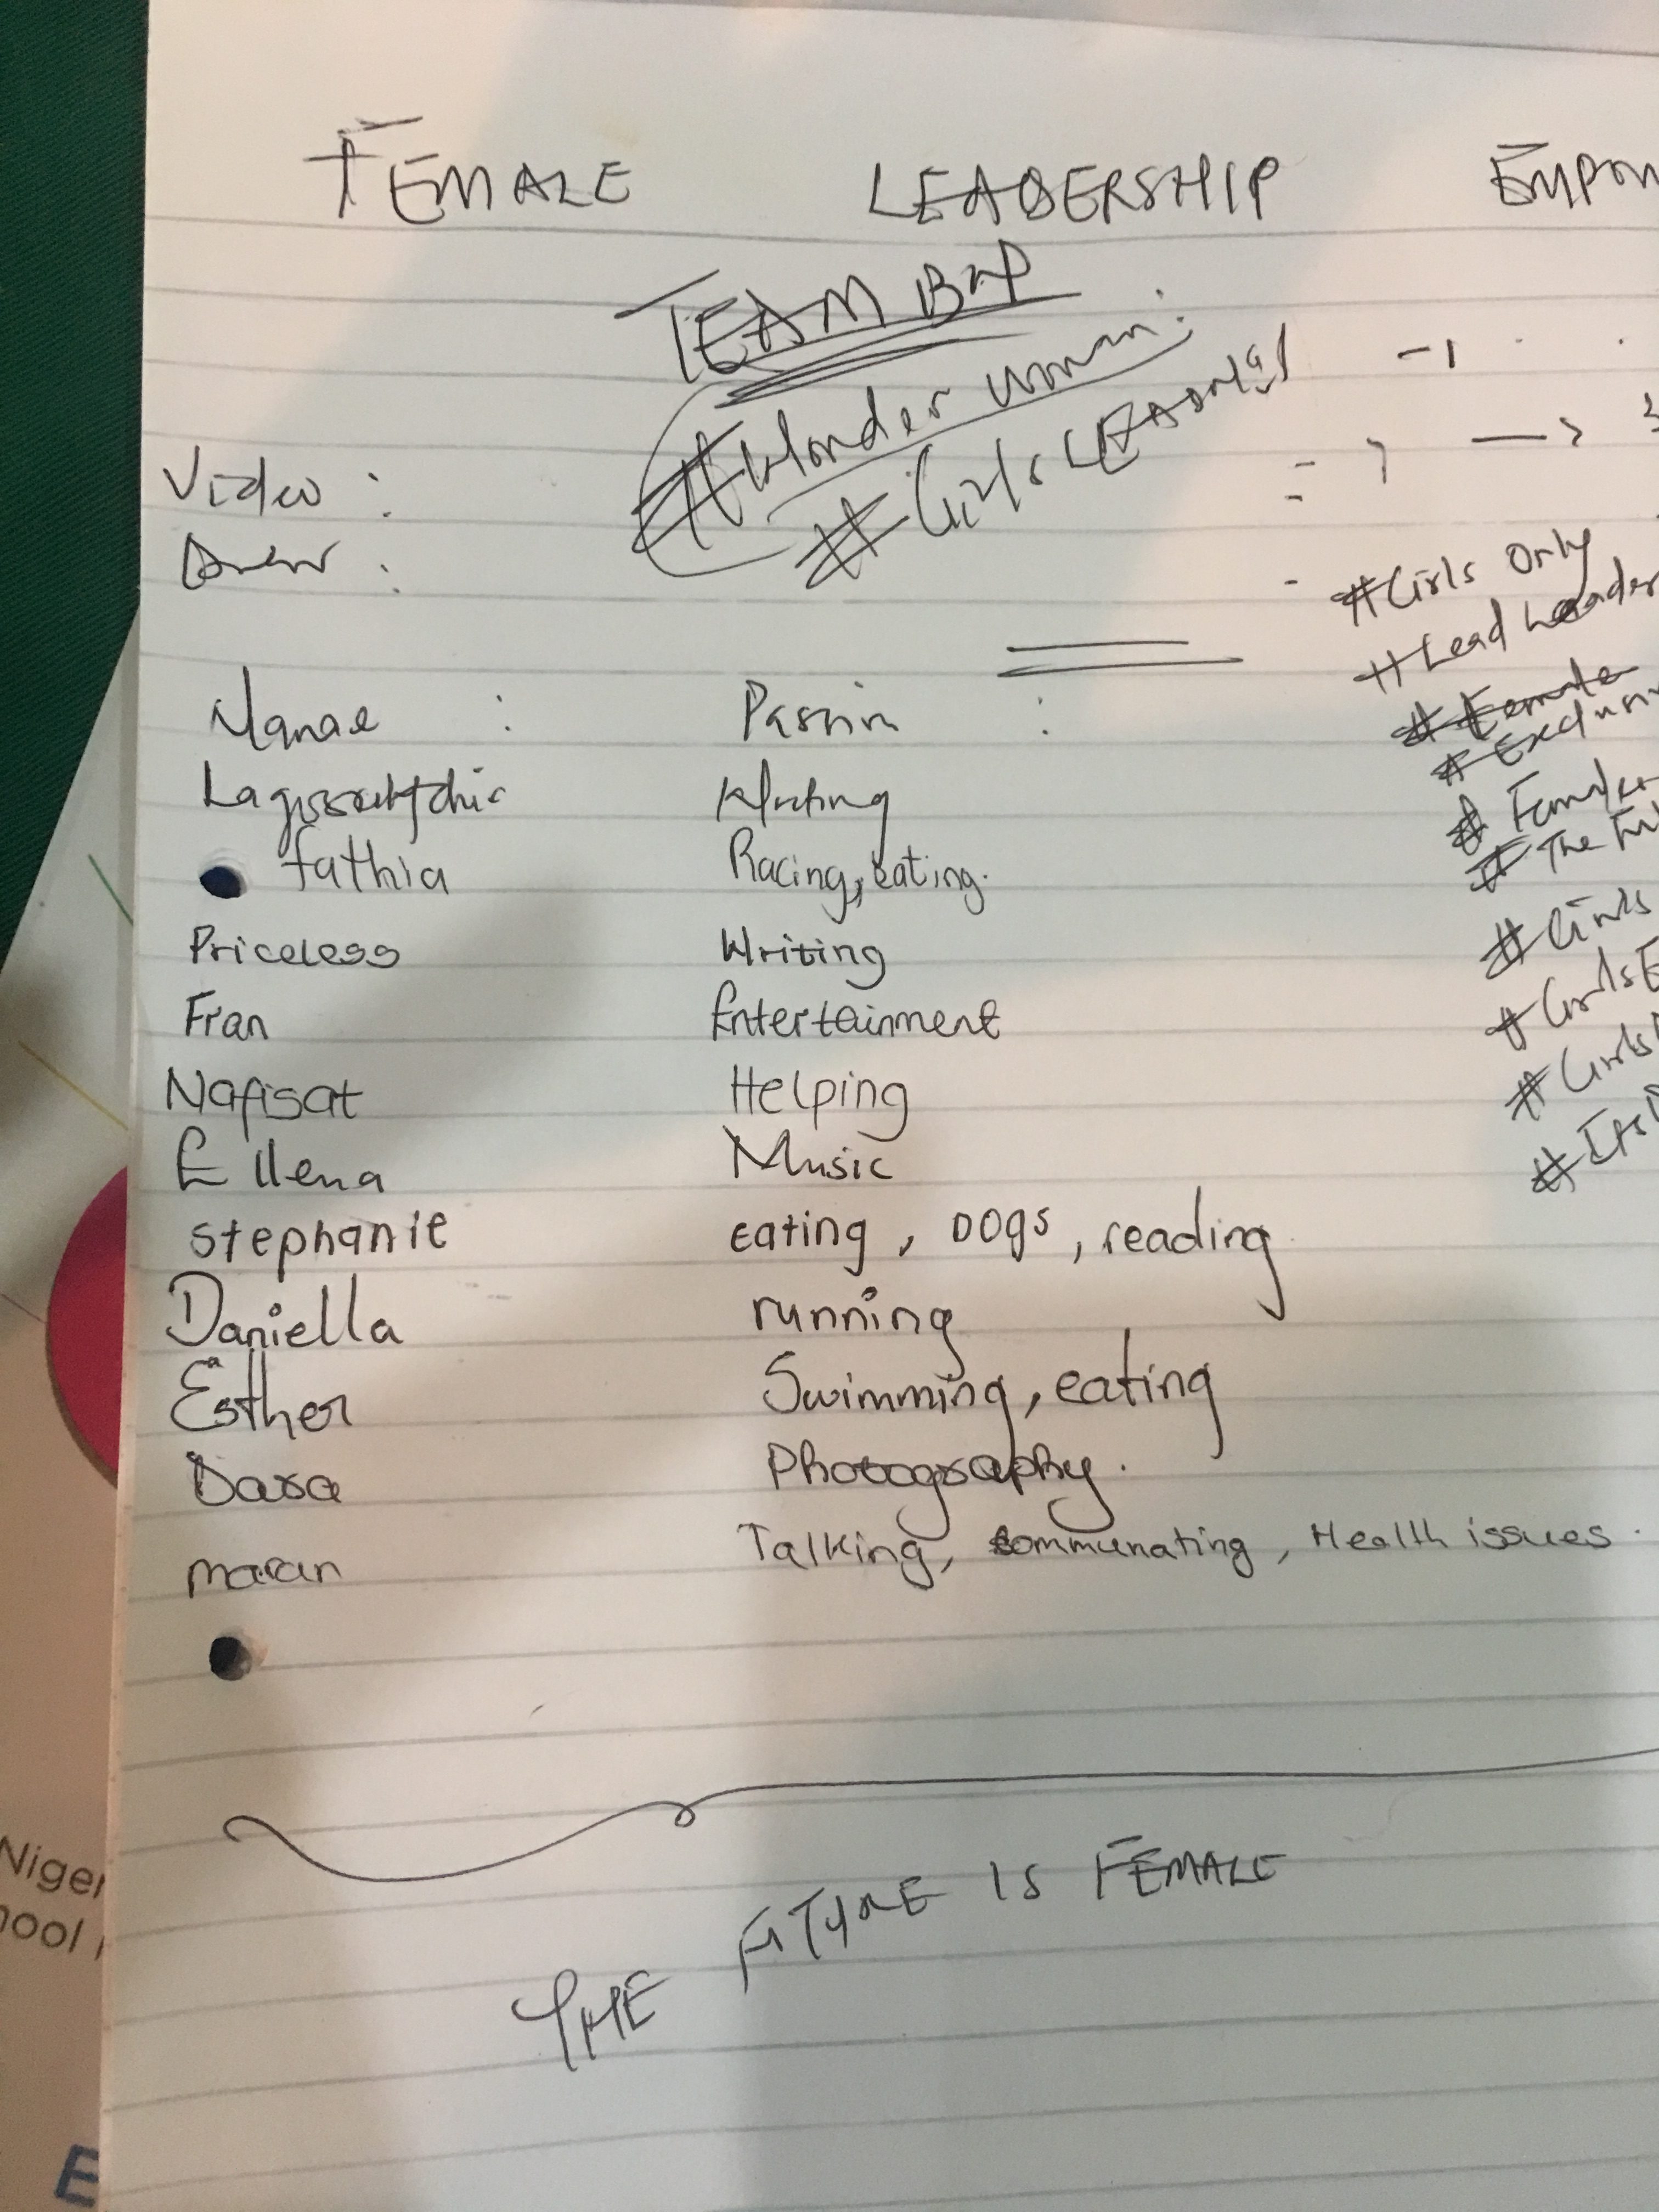 FEMALE LEADERSHIP EMPOW
TEAM
#Wonder woman
#Girls
Video :
#Girls Only
#Lead Leader
#Female
#Exclusiv
# The Fut
# Girls
# GirlsE
# Girls
Name : Passion :
Lagosschic Writing
fathia Racing, eating.
Priceless Writing
Fran Entertainment
Nafisat Helping
Ellena Music
stephanie eating, DOgs, reading
Daniella running
Esther Swimming, eating
Dara Photography.
maran Talking, communating, Health issues.
THE FUTURE IS FEMALE
Niger
hool
E